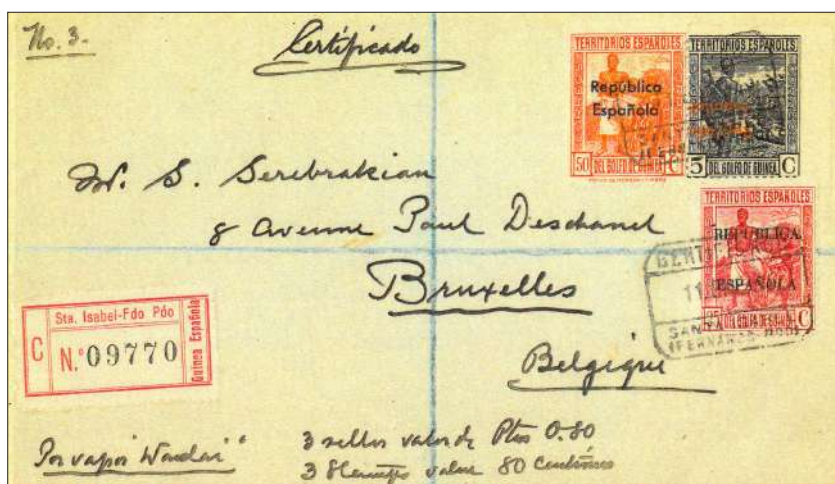 No. 3-
Certificado
TERRITORIOS ESPAÑOLES
República
Española
50 DEL GOLFO DE GUINEA C
TERRITORIOS ESPAÑOLES
5 DEL GOLFO DE GUINEA C
W. S. Serebrakian
8 Avenue Paul Deschanel
Bruxelles
Belgique
TERRITORIOS ESPAÑOLES
REPUBLICA
ESPAÑOLA
25 DEL GOLFO DE GUINEA C
CERTIFICADO
11
SANTA
(FERNANDO POO)
Sta. Isabel-Fdo Póo
C N.º 09770
Guinea Española
Por vapor "Wadai"
3 sellos valor de Ptas 0.80
3 Stamps value 80 Centimes